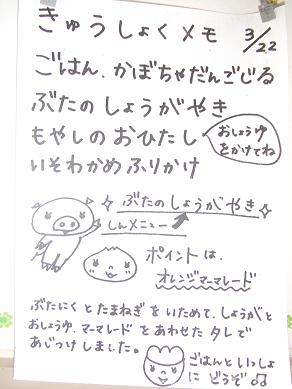 きゅうしょくメモ 3/22
ごはん．かぼちゃだんごじる
ぶたのしょうがやき
もやしのおひたし
おしょうゆ
をかけてね
いそわかめふりかけ
ぶたのしょうがやき
しんメニュー
ポイントは．
オレンジマーマレード
ぶたにくとたまねぎをいためて．しょうがと
おしょうゆ．マーマレードをあわせたタレで
あじつけしました。
ごはんといっしょ
にどうぞ♫